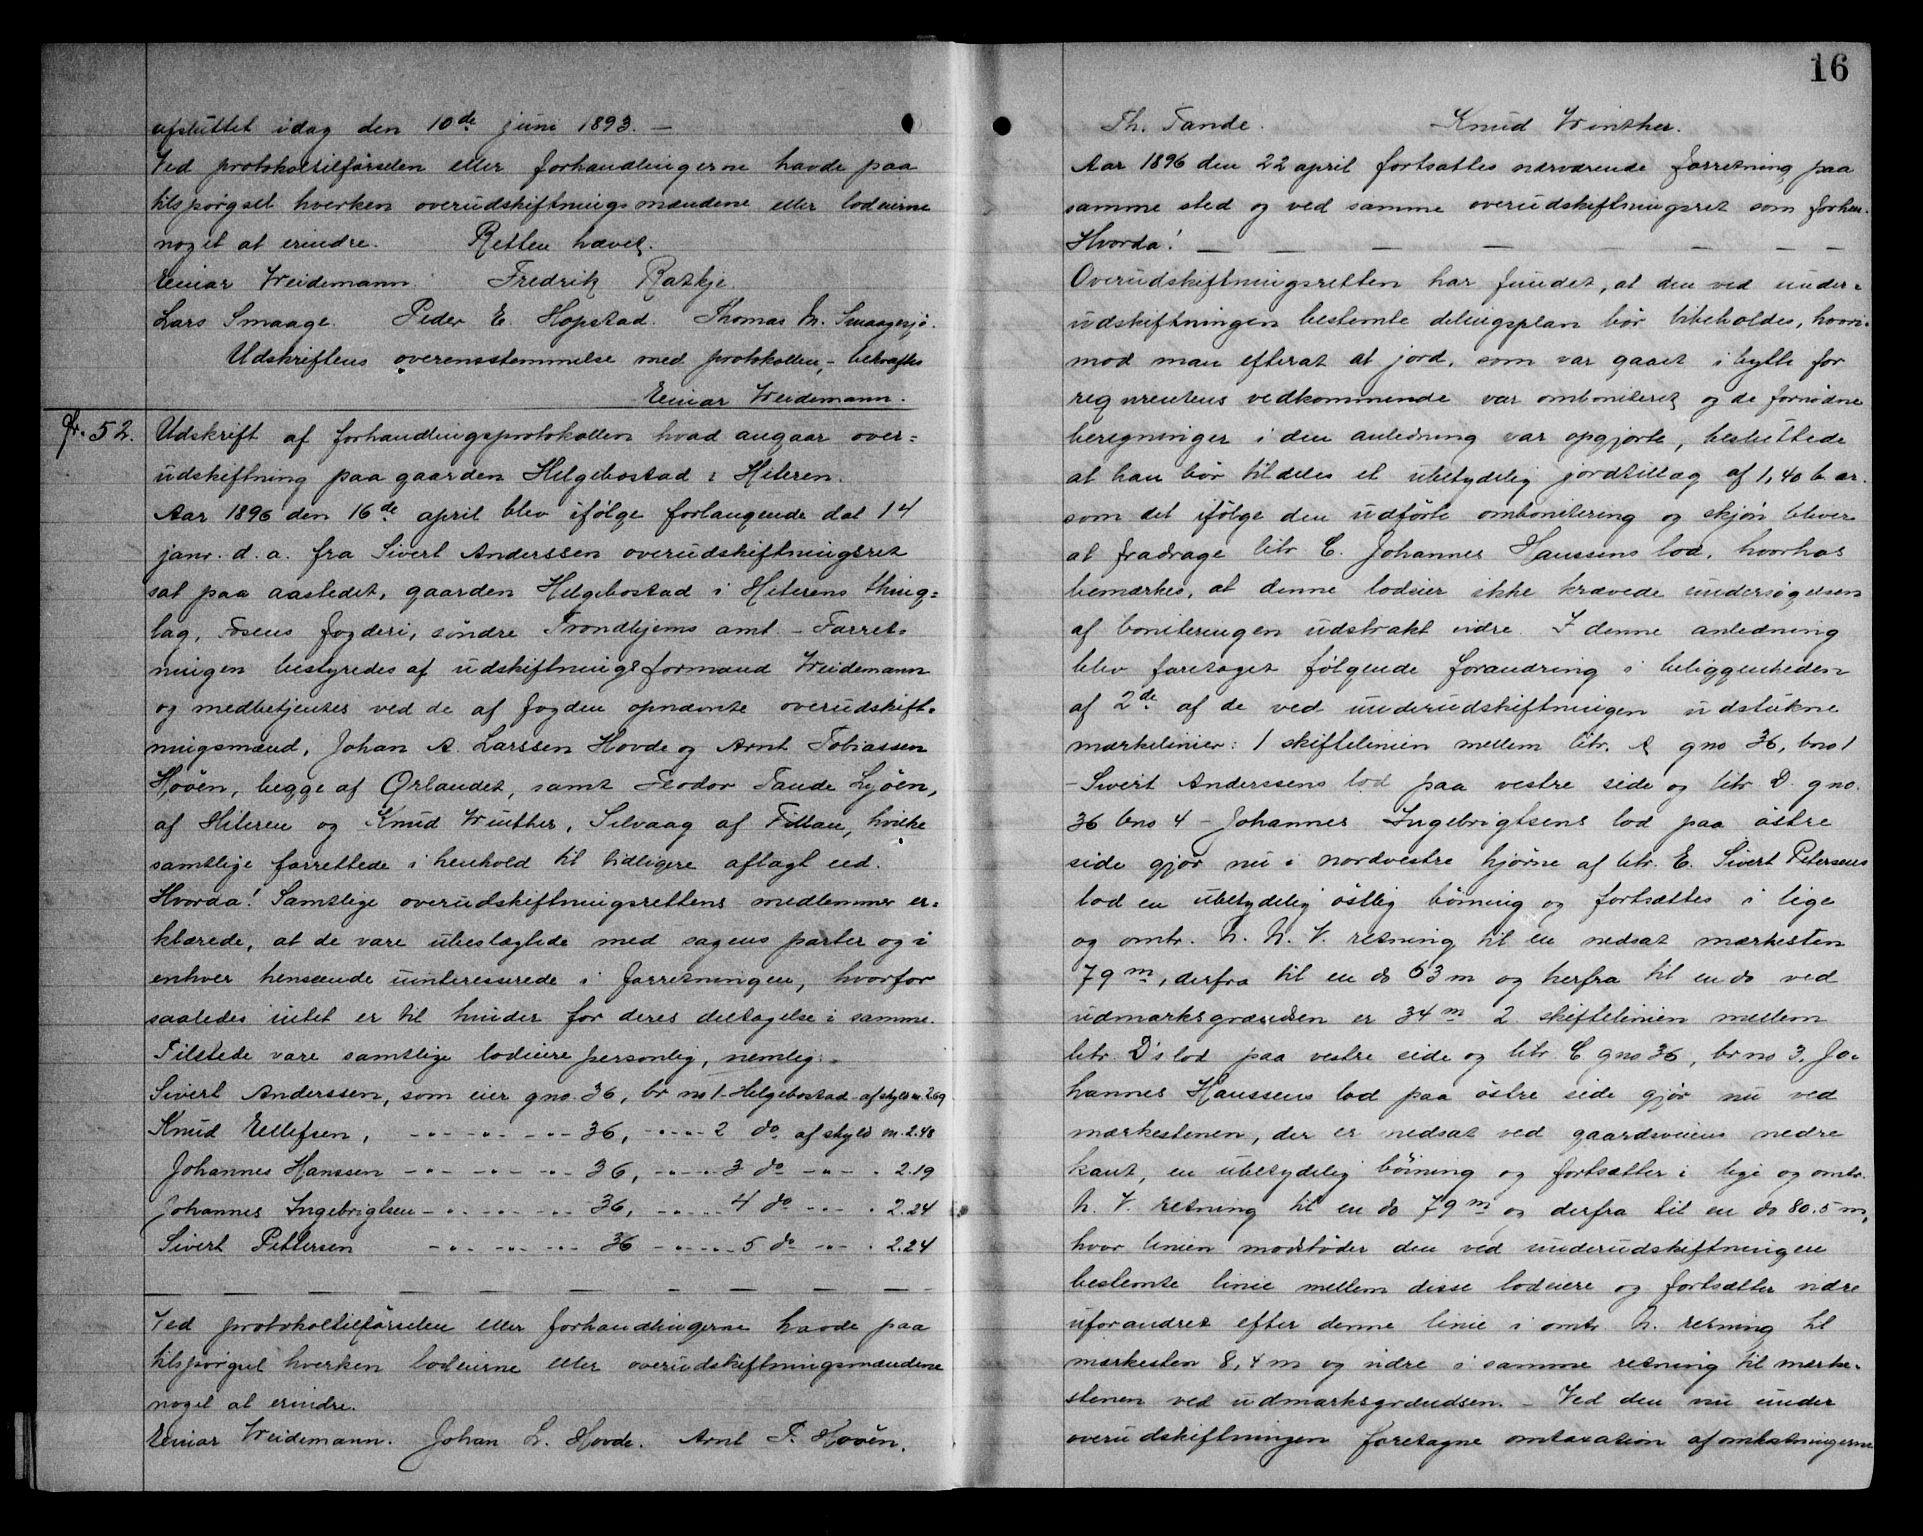 afsluttet idag den 10de juni 1893. —
Ved protokoltilførselen eller forhandlingerne havde paa
tilspørgsel hverken overudskiftningsmændene eller lodeierne
noget at erindre. Retten hævet.
Einar Weidemann. Fredrik Ratkje.
Lars Smaage. Peder E. Hopstad. Thomas M. Smaagesjø.
Udskriftens overensstemmelse med protokollen, - bekræftes
Einar Weidemann.
Nr. 52. Udskrift af forhandlingsprotokollen hvad angaar over-
udskiftning paa gaarden Helgebostad i Hiteren.
Aar 1896 den 16de april blev ifølge forlangende dat 14
janr. d. a. fra Sivert Anderssen overudskiftningsret
sat paa aastedet, gaarden Helgebostad i Hiterens thing-
lag, Fosens fogderi, søndre Trondhjems amt. - Forret-
ningen bestyredes af udskiftningsformand Weidemann
og medbetjentes ved de af fogden opnævnte overudskift-
ningsmænd, Johan A. Larssen Hovde og Arnt Tobiassen
Hovén, begge af Ørlandet, samt Teodor Tande Ljøen,
af Hiteren og Knud Winther, Selvaag af Fillan, hvilke
samtlige forrettede i henhold til tidligere aflagt ed.
Hvorda! Samtlige overudskiftningsrettens medlemmer er-
klærede, at de vare ubeslægtede med sagens parter og i
enhver henseende uinteresserede i forretningen, hvorfor
saaledes intet er til hinder for deres deltagelse i samme.
Tilstede vare samtlige lodeiere personlig, nemlig: -
Sivert Anderssen, som eier gno. 36, br no 1 Helgebostad af skyld m. 2.69
Knud Ellefsen, -"- -"- -"- 36, -"- -"- 2 do af skyld m. 2.48
Johannes Hanssen -"- -"- -"- 36, -"- -"- 3 do -"- -"- 2.19
Johannes Ingebrigtsen -"- -"- -"- 36, -"- -"- 4 do -"- -"- 2.24
Sivert Pettersen -"- -"- -"- 36 -"- -"- 5 do -"- -"- 2.24
— — — — — — — — — —
Ved protokoltilførselen eller forhandlingerne havde paa
tilspørgsel hverken lodeierne eller overudskiftningsmændene
noget at erindre.
Einar Weidemann. Johan L. Hovde. Arnt T. Hovén.
16
Th. Tande. Knud Winther.
Aar 1896 den 22 april fortsattes nærværende forretning paa
samme sted og ved samme overudskiftningsret som forhen.
Hvorda! — — — — — — — —
Overudskiftningsretten har fundet, at den ved under-
udskiftningen bestemte delingsplan bør bibeholdes, hvori-
mod man efterat at jord, som var gaaet i bytte for
reqvirentens vedkommende var omboniteret og de fornødne
beregninger i den anledning var opgjorte, besluttede
at han bør tildeles et ubetydelig jordtillæg af 1,40 b. ar.
som det ifølge den udførte ombonitering og skjøn bliver
at fradrage litr. C. Johannes Hanssens lod, hvorhos
bemærkes, at denne lodeier ikke krævede undersøgelsen
af boniteringen udstrakt vidre. I denne anledning
blev foretaget følgende forandring i beliggenheden
af 2de af de ved underudskiftningen udstukne
mærkelinier: 1 skiftelinien mellem litr. A gno 36, bno 1
- Sivert Anderssens lod paa vestre side og litr D. gno.
36 bno 4 - Johannes Ingebrigtsens lod paa østre
side gjør nu i nordvestre hjørne af litr. E. Sivert Petersens
lod en ubetydelig østlig bøining og fortsættes i lige
og omtr. N. N. V. retning til en nedsat mærkesten
79 m, derfra til en do 63 m og herfra til en do ved
udmarksgrændsen er 34 m 2. skiftelinien mellem
litr. D's lod paa vestre side og litr. C gno 36, br no 3, Jo-
hannes Hanssens lod paa østre side gjør nu ved
mærkestenen, der er nedsat ved gaardsveiens nedre
kant, en ubetydelig bøining og fortsætter i lige og omtr.
N. V. retning til en do 79 m og derfra til en do 80.5 m,
hvor linien modstøder den ved underudskiftningen
bestemte linie mellem disse lodeiere og fortsætter vidre
uforandret efter denne linie i omtr N. retning til
mærkesten 8,4 m og vidre i samme retning til mærke-
stenen ved udmarksgrændsen. - Ved den nu under
overudskiftningen foretagne omtaxation af omkostningerne